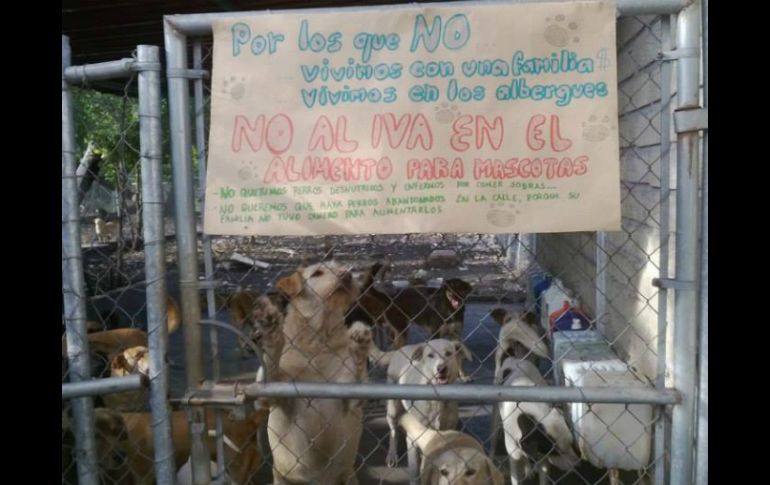 Por los que NO
vivimos con una familia
vivimos en los albergues
NO AL IVA EN EL
ALIMENTO PARA MASCOTAS
- NO QUEREMOS PERROS DESNUTRIDOS Y ENFERMOS POR COMER SOBRAS...
- NO QUEREMOS QUE HAYA PERROS ABANDONADOS EN LA CALLE, PORQUE SU
FAMILIA NO TUVO DINERO PARA ALIMENTARLOS